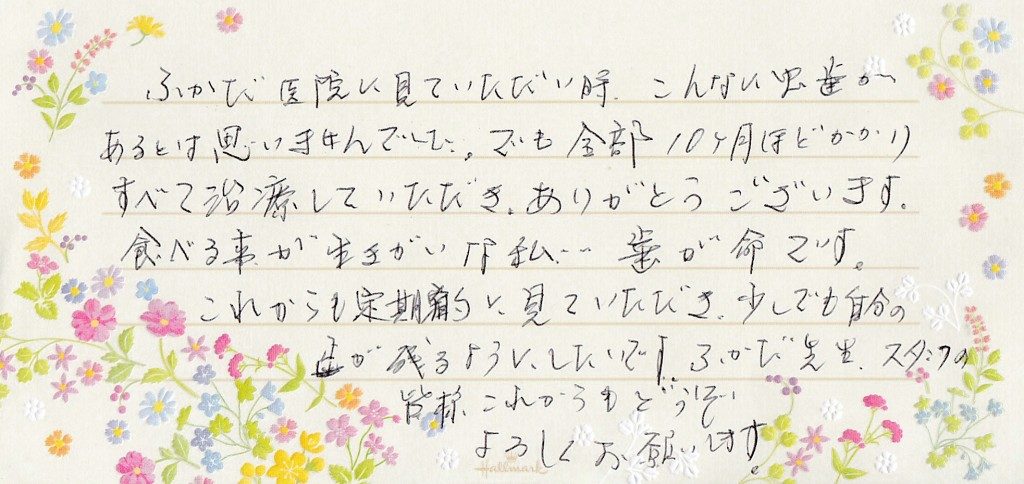 ふかだ医院に見ていただい時、こんなに虫歯が
あるとは思いませんでした。でも全部10ヶ月ほどかかり
すべて治療していただき、ありがとうございます。
食べる事が生きがいな私… 歯が命です。
これからも定期的に見ていただき、少しでも自分の
歯が残るようにしたいです。ふかだ先生、スタッフの
皆様これからもどうぞ
よろしくお願いします。
Hallmark